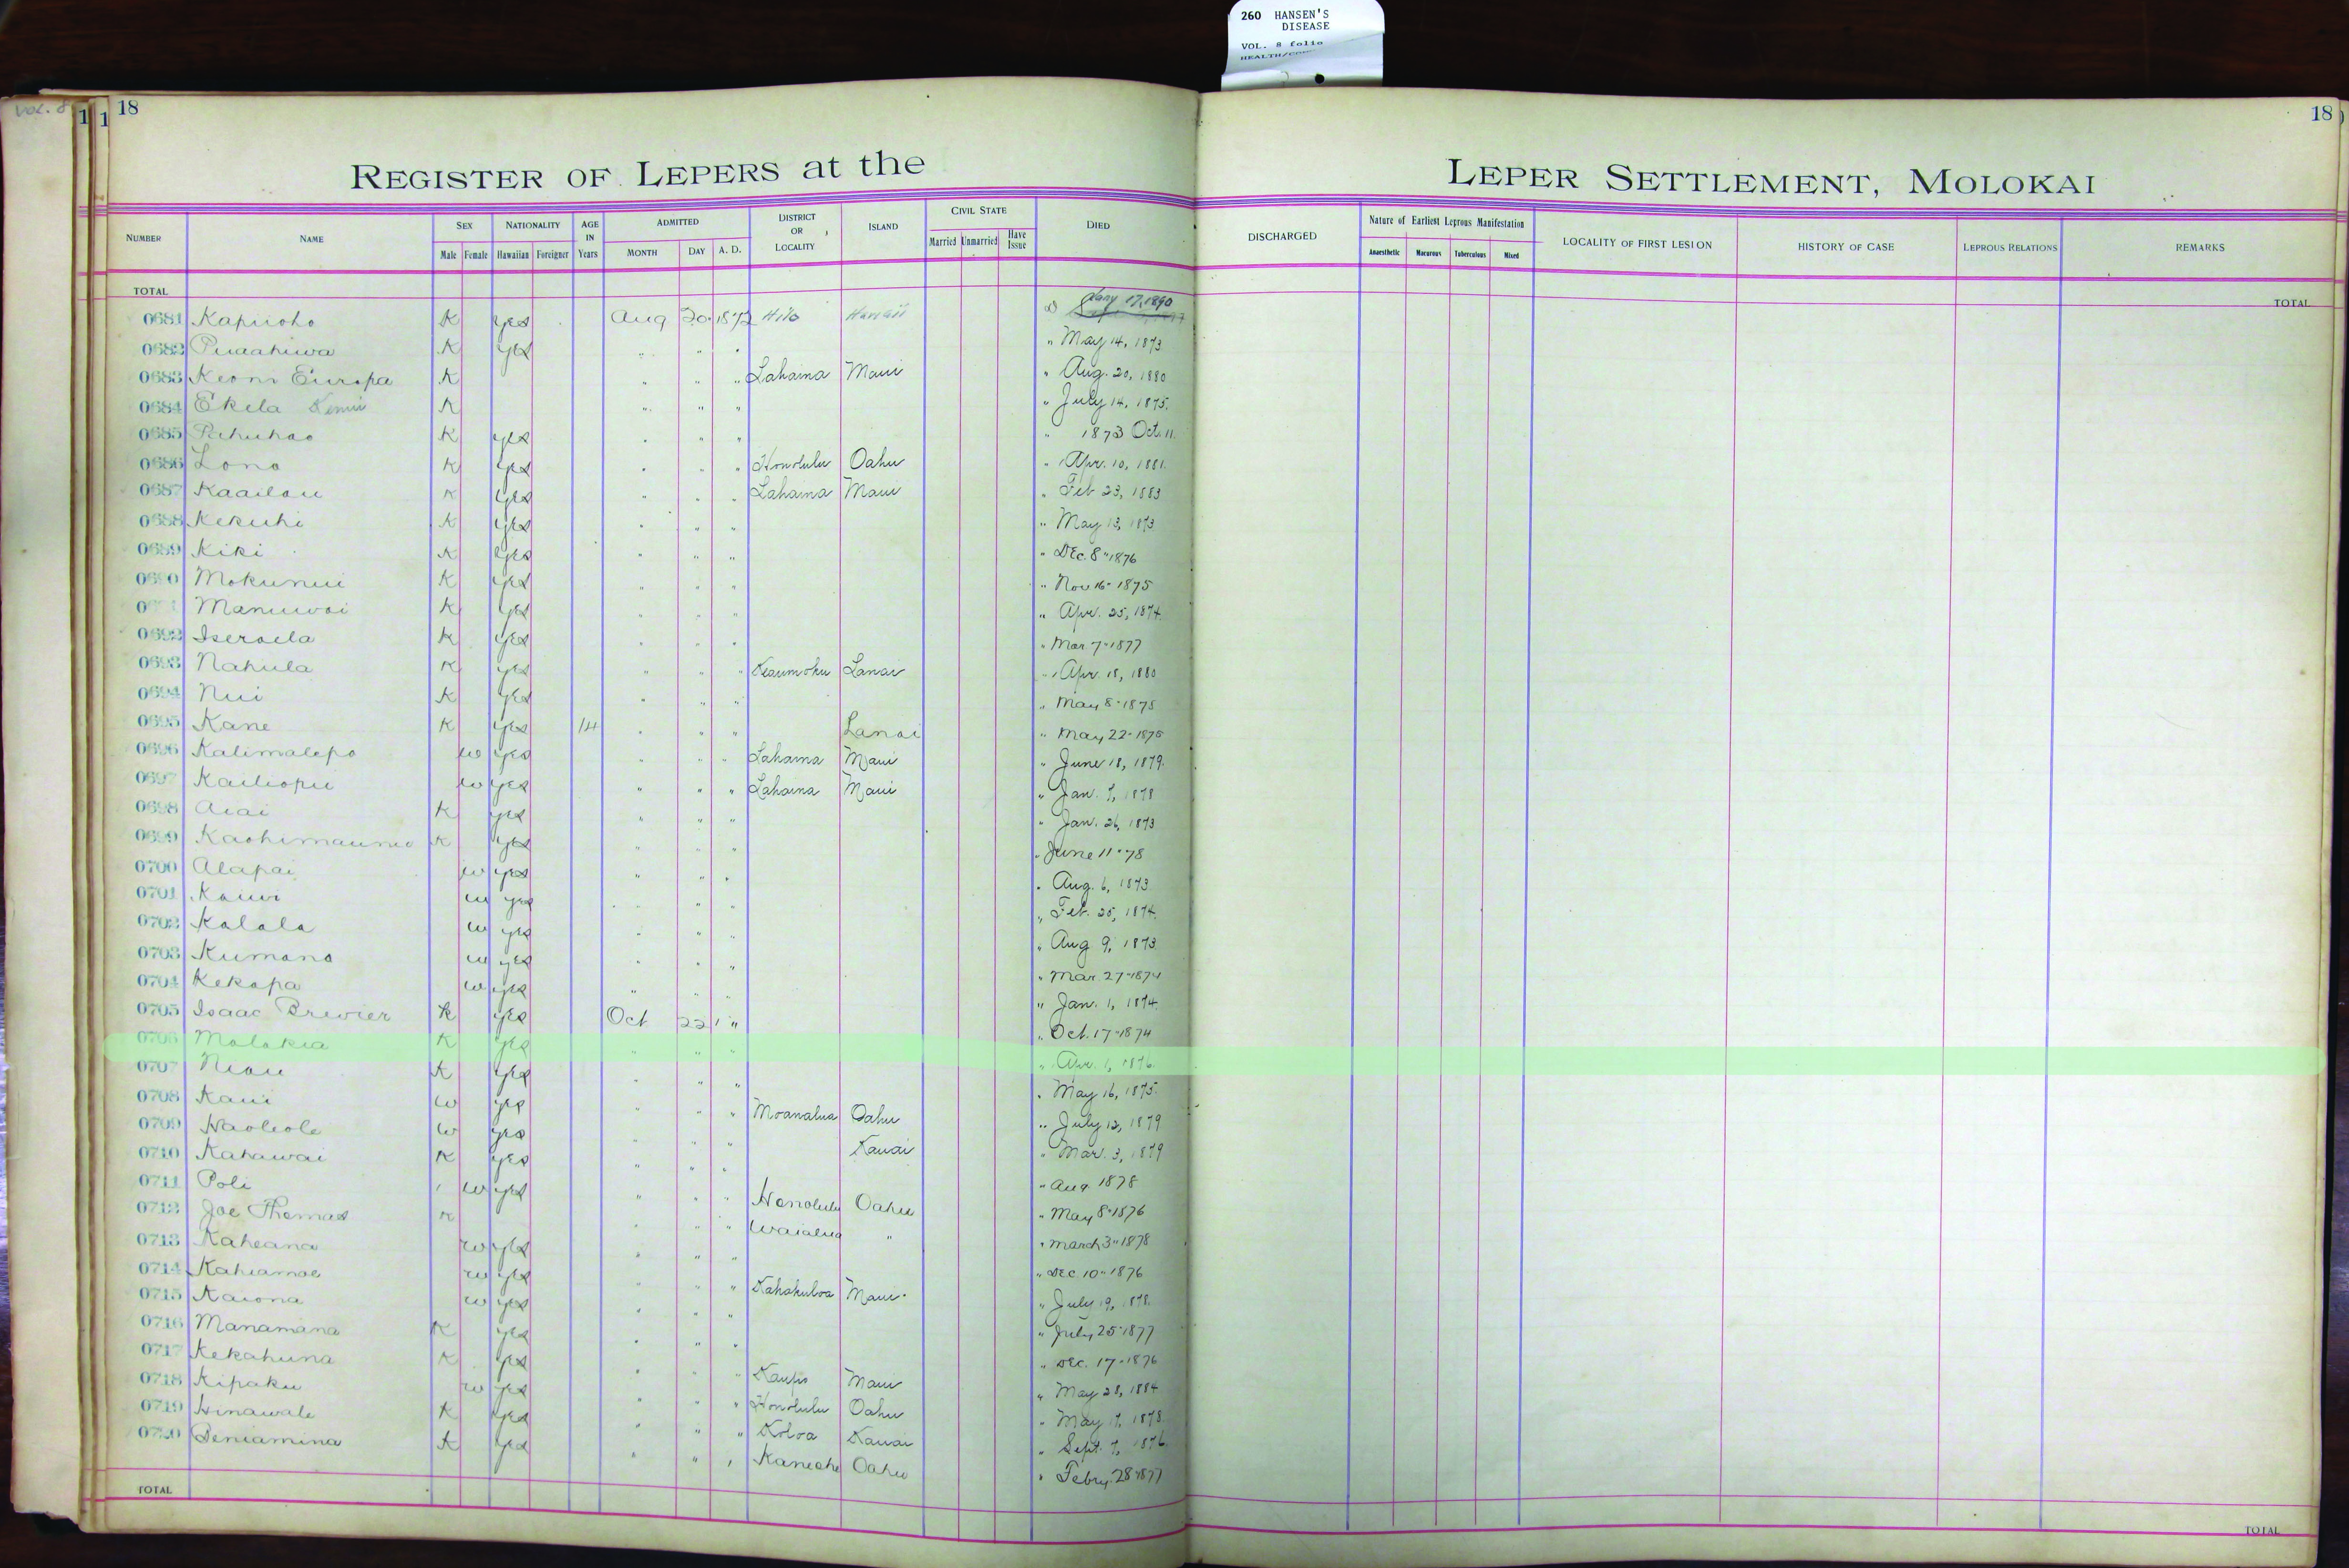 260 HANSEN'S
DISEASE
VOL. 8 folio
VOL. 8
1 1 18
18
REGISTER OF LEPERS at the LEPER SETTLEMENT, MOLOKAI
NUMBER NAME SEX Male Female NATIONALITY Hawaiian Foreigner AGE IN Years ADMITTED MONTH DAY A. D. DISTRICT OR LOCALITY ISLAND CIVIL STATE Married Unmarried Have Issue DIED DISCHARGED Nature of Earliest Leprous Manifestation Anaesthetic Macurous Tuberculous Mixed LOCALITY OF FIRST LESION HISTORY OF CASE LEPROUS RELATIONS REMARKS
TOTAL TOTAL
0681 Kapiioho K yes Aug 20 1872 Hilo Hawaii D Jany 17, 1890
0682 Puaahiwa K yes " " " " May 14, 1873
0683 Keoni Europa K " " " Lahaina Maui " Aug. 20, 1880
0684 Ekela K " " " " July 14, 1875.
0685 Pahuhao K yes " " " " 1873 Oct. 11.
0686 Lono K yes " " " Honolulu Oahu " Apr. 10, 1881.
0687 Kaailau K yes " " " Lahaina Maui " Feb 23, 1883
0688 Kekuhi K yes " " " " May 13, 1873
0689 Kiki K yes " " " " Dec. 8" 1876
0690 Mokunui K yes " " " " Nov 16" 1875
Manuwai K yes " " " " Apr. 25, 1874.
0692 Iseraela K yes " " " " Mar 7" 1877
0693 Nahula K yes " " " Keaumoku Lanai " Apr. 18, 1880
0694 Nui K yes " " " " May 8" 1875
0695 Kane K yes 14 " " " Lanai " May 22" 1875
0696 Kalimalepo w yes " " " Lahaina Maui " June 18, 1879.
0697 Kailiopu w yes " " " Lahaina Maui " Jan. 7, 1878
0698 Aiai K yes " " " " Jan. 26, 1873
0699 Kaohimaunu K yes " " " " June 11" 78
0700 Alapai w yes " " " " Aug. 6, 1873
0701 Kauwi w yes " " " " Feb. 25, 1874.
0702 Kalala w yes " " " " Aug 9, 1873.
0703 Kumano w yes " " " " Mar 27" 1874
0704 Kekapa w yes " " " " Jan. 1, 1874.
0705 Isaac Brewier K yes Oct 22 " " Oct. 17" 1874
0706 Molokia K yes " " " " Apr. 1, 1876.
0707 Niau K yes " " " " May 16, 1875.
0708 Kaui w yes " " " Moanalua Oahu " July 12, 1879
0709 Haoleole w yes " " " Kauai " Mar. 3, 1879
0710 Kahawai K yes " " " " Aug 1878
0711 Poli w yes " " " Honolulu Oahu " May 8" 1876
0712 Joe Thomas K " " " Waialua " " March 3" 1878
0713 Kaheana w yes " " " " Dec 10" 1876
0714 Kahiamoe w yes " " " Kahakuloa Maui " July 19, 1878.
0715 Kaiona w yes " " " " July 25" 1877
0716 Manamana K yes " " " " Dec. 17" 1876
0717 Kekahuna K yes " " " Kaupo Maui " May 28, 1884
0718 Kipaku w yes " " " Honolulu Oahu " May 17, 1878.
0719 Hinawale K yes " " " Koloa Kauai " Sept. 7, 1876.
0720 Beniamina K yes " " " Kaneohe Oahu " Febry. 28" 1877
TOTAL TOTAL